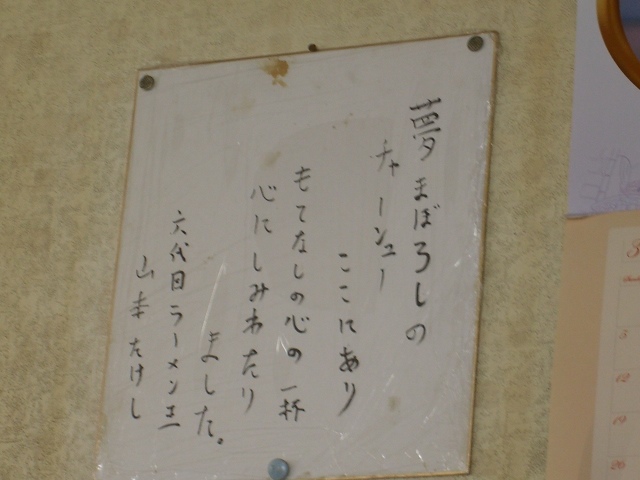 夢まぼろしの
チャーシュー
ここにあり
もてなしの心の一杯
心にしみわたり
ました。
六代目ラーメン王
山本たけし
5
12
19
26